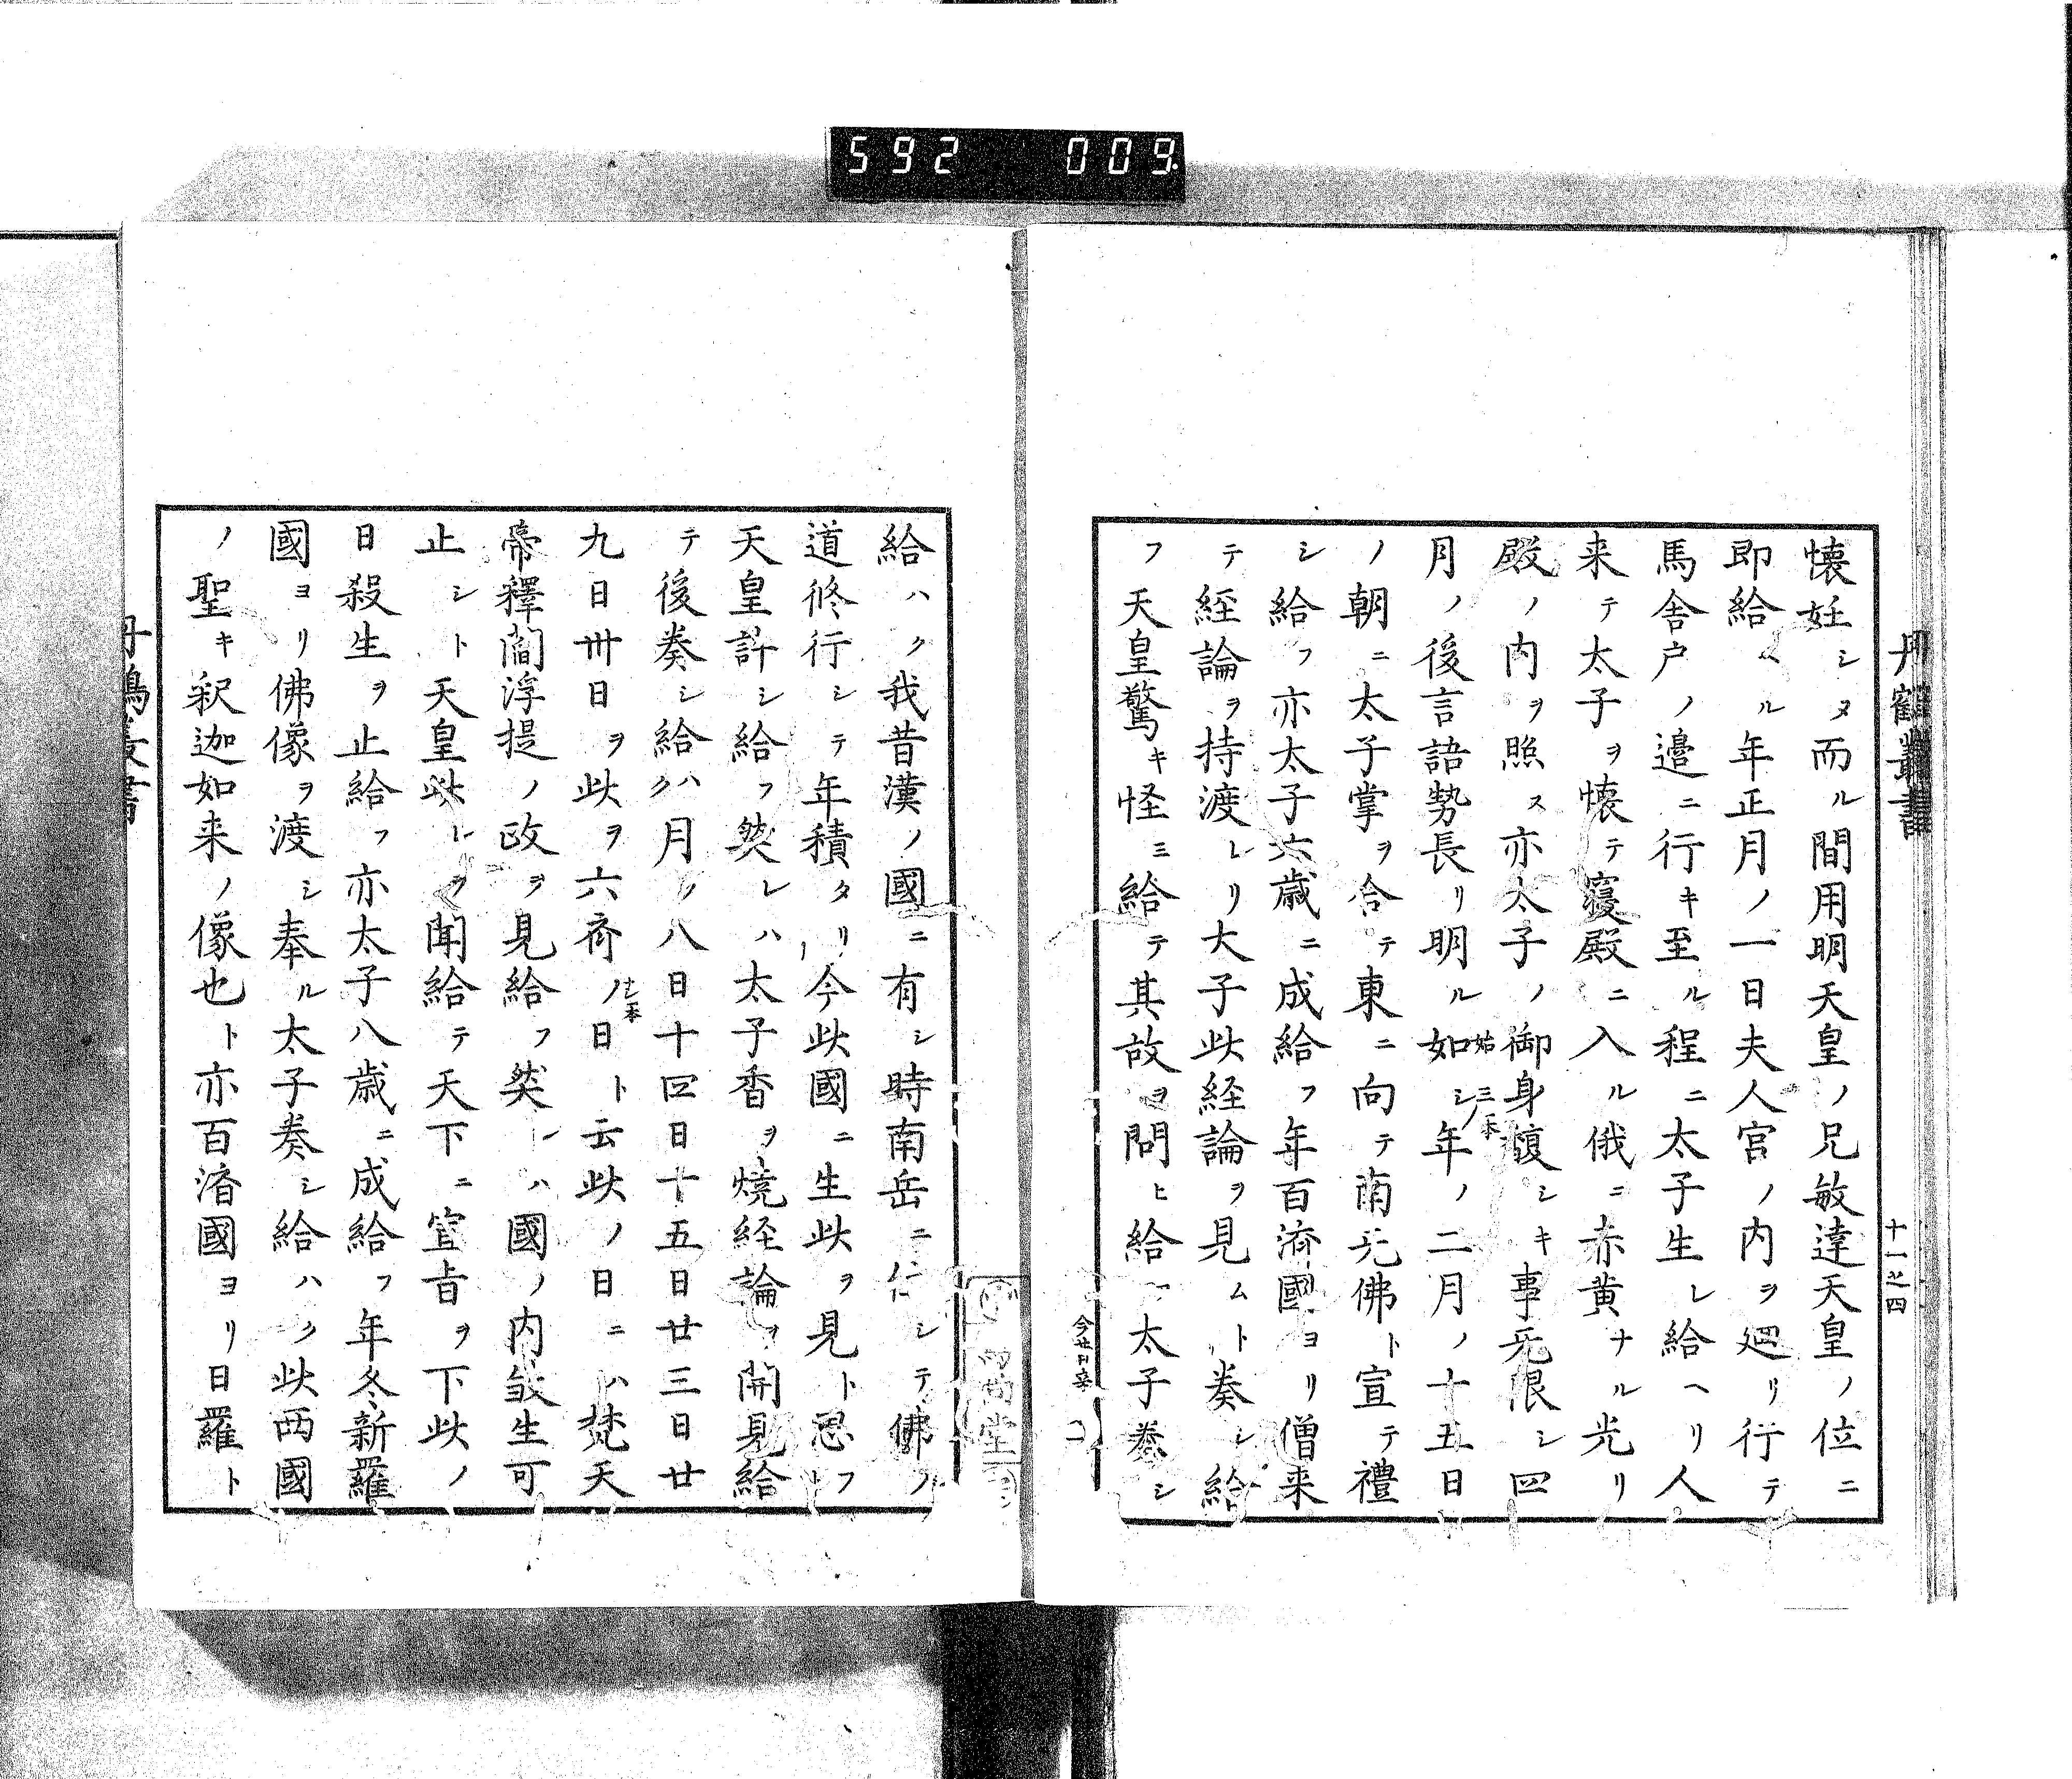 592 009.
丹鶴叢書
十一之四
懐妊シヌ而ル間用明天皇ノ兄敏達天皇ノ位ニ
即給ヘル年正月ノ一日夫人宮ノ内ヲ廻リ行テ
馬舎戸ノ邉ニ行キ至ル程ニ太子生レ給ヘリ人
来テ太子ヲ懐テ寝殿ニ入ル俄ニ赤黄ナル光リ
殿ノ内ヲ照ス亦太子ノ御身馥シキ事无限シ四
月ノ後言語勢長リ明ル如シ年ノ二月ノ十五日
始 三本
ノ朝ニ太子掌ヲ合テ東ニ向テ南无佛ト宣テ禮
シ給フ亦太子六歳ニ成給フ年百済國ヨリ僧来
テ経論ヲ持渡レリ大子此経論ヲ見ムト奏シ給
フ天皇驚キ怪ミ給テ其故ヲ問ヒ給一太子奏シ
給ハク我昔漢ノ國ニ有シ時南岳ニ住シテ佛ノ
道修行シテ年積タリ今此國ニ生此ヲ見ト思フ
天皇許シ給フ然レハ太子香ヲ焼経論ヲ開見給
テ後奏シ給ハク月ノ八日十四日十五日廿三日廿
九日卅日ヲ此ヲ六斎ノ日ト云此ノ日ニハ梵天
帝釋閻浮提ノ政ヲ見給フ然レハ國ノ内殺生可
止シト天皇此レヲ聞給テ天下ニ宣旨ヲ下此ノ
日殺生ヲ止給フ亦太子八歳ニ成給フ年冬新羅
國ヨリ佛像ヲ渡シ奉ル太子奏シ給ハク此西國
ノ聖キ釈迦如来ノ像也ト亦百済國ヨリ日羅ト